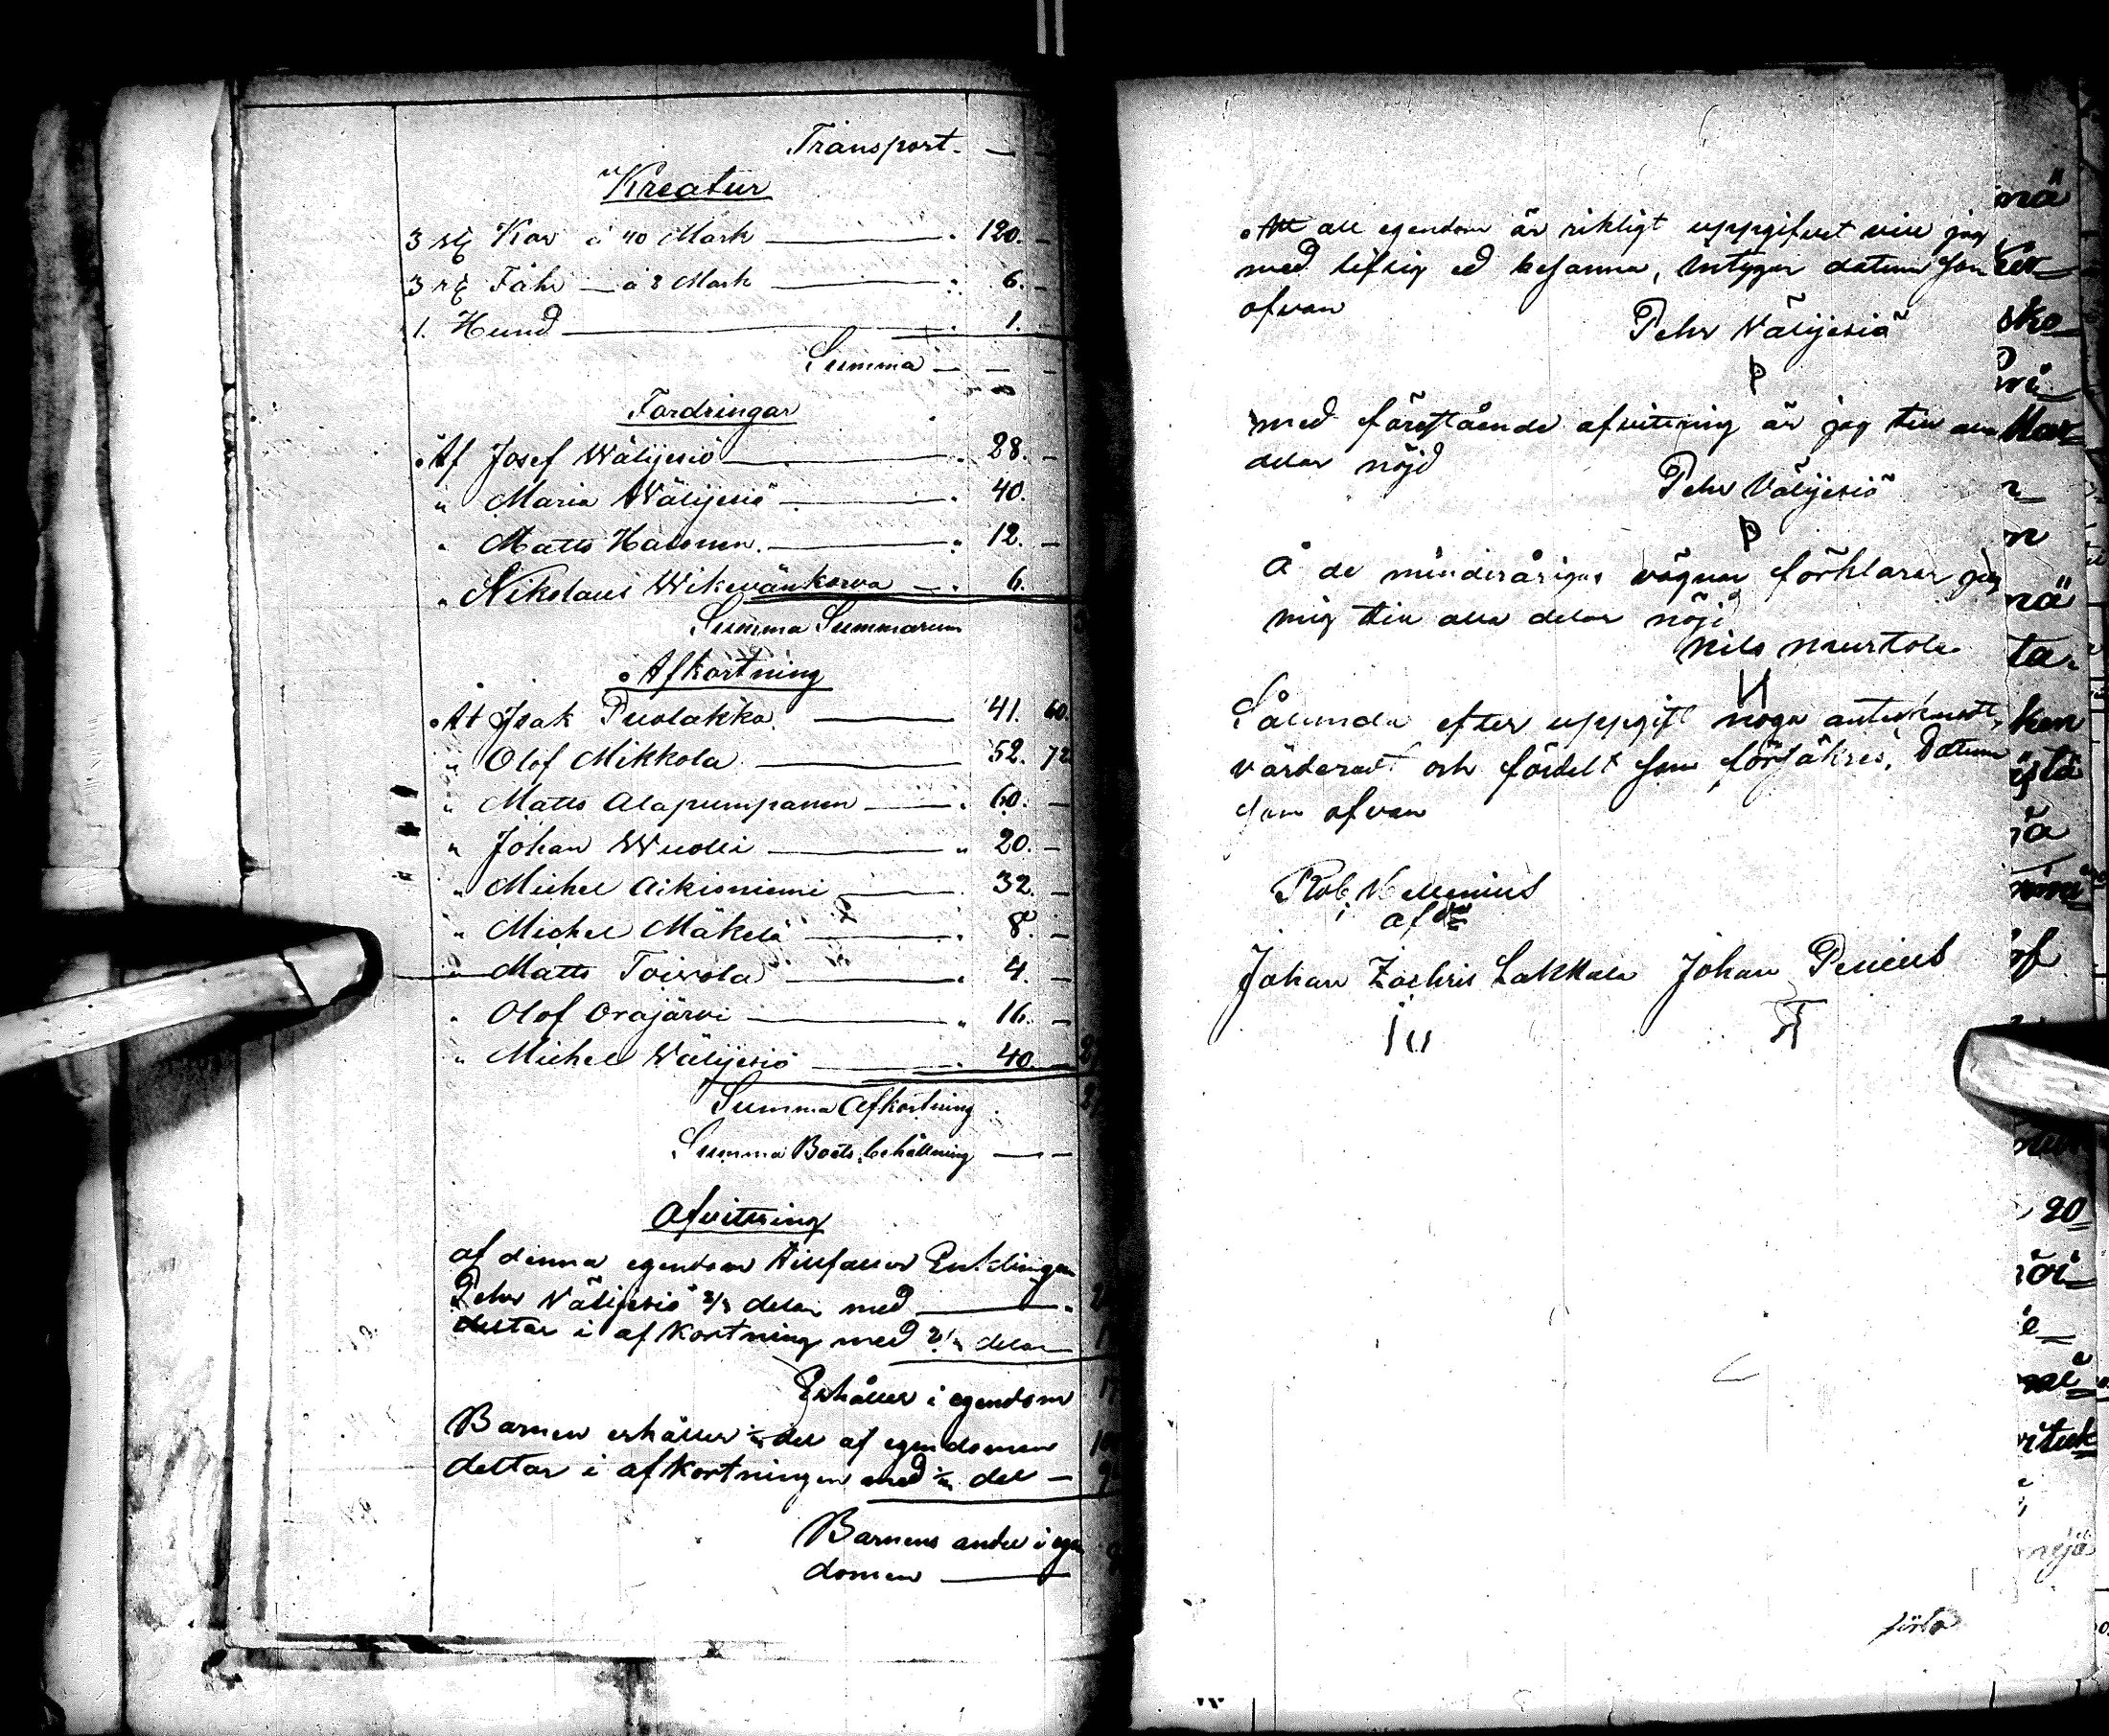 Transport. — —
Kreatur
3 st Kor à 40 Mark — 120. —
3 st Fåhr — à 2 Mark — 6. —
1. Hund — 1. —
Summa — — —
Fordringar
Af Josef Wälijesiö — 28. —
" Maria Wälijesiö — 40.
" Matts — 12. —
" Nikolaus — 6.
Summa Summarum
Afkortning
At Isak Puolakka — 41. 60.
" Olof Mikkola — 52. 72
" Matts Alapumpanen — 60. —
" Johan Wuolli — 20. —
" Michel — 32. —
" Michel Mäkelä — 8. —
" Matts Toivola — 4. —
" Olof Orajärvi — 16. —
" Michel Wälijesiö — 40. —
Summa Afkortning
Summa Boets behållning — —
Afvittring
af denna egendom tillfaller Enklingen
Pehr Välijesiö 2/3 delar med —
deltar i afkortning med 2/3 delar
Erhåller i egendom
Barnen erhåller 1/3 del af egendomen
deltar i afkortningen med 1/3 del —
Barnens andel i egen
domen —
Att all egendom är riktigt uppgifvet vill jag
med liflig ed besanna, intygar datum som
ofvan
Pehr Välijesiö
P
med förestående afvittring är jag till alla
delar nöjd
Pehr Välijesiö
P
Å de minderårigas vägnar förklarar jag
mig till alla delar nöjd
Nils Muurtola
N
Sålunda efter uppgift noga antecknadt,
värderadt och fördelt som försäkres, Datum
som ofvan
Rob. Mellenius
Johan Zachris Lakkala Johan